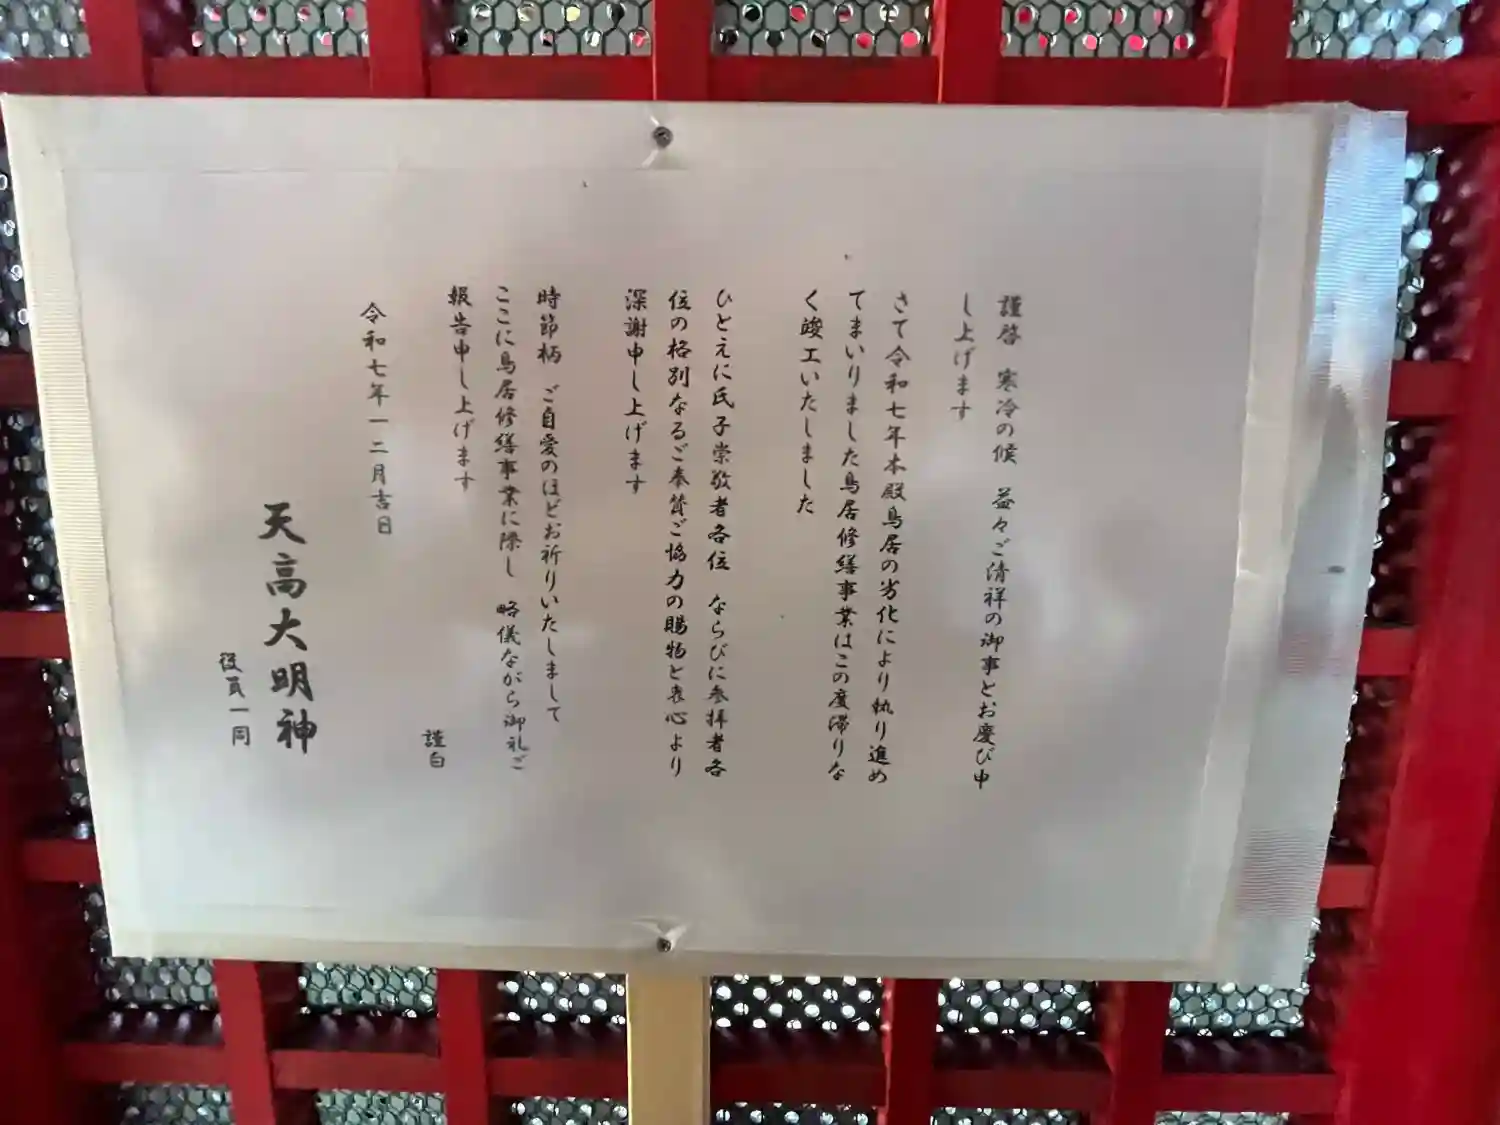 謹啓　寒冷の候　益々ご清祥の御事とお慶び申
し上げます
さて令和七年本殿鳥居の劣化により執り進め
てまいりました鳥居修繕事業はこの度滞りな
く竣工いたしました
ひとえに氏子崇敬者各位　ならびに参拝者各
位の格別なるご奉賛ご協力の賜物と衷心より
深謝申し上げます
時節柄　ご自愛のほどお祈りいたしまして
ここに鳥居修繕事業に際し　略儀ながら御礼ご
報告申し上げます
謹白
令和七年一二月吉日
天高大明神
役員一同